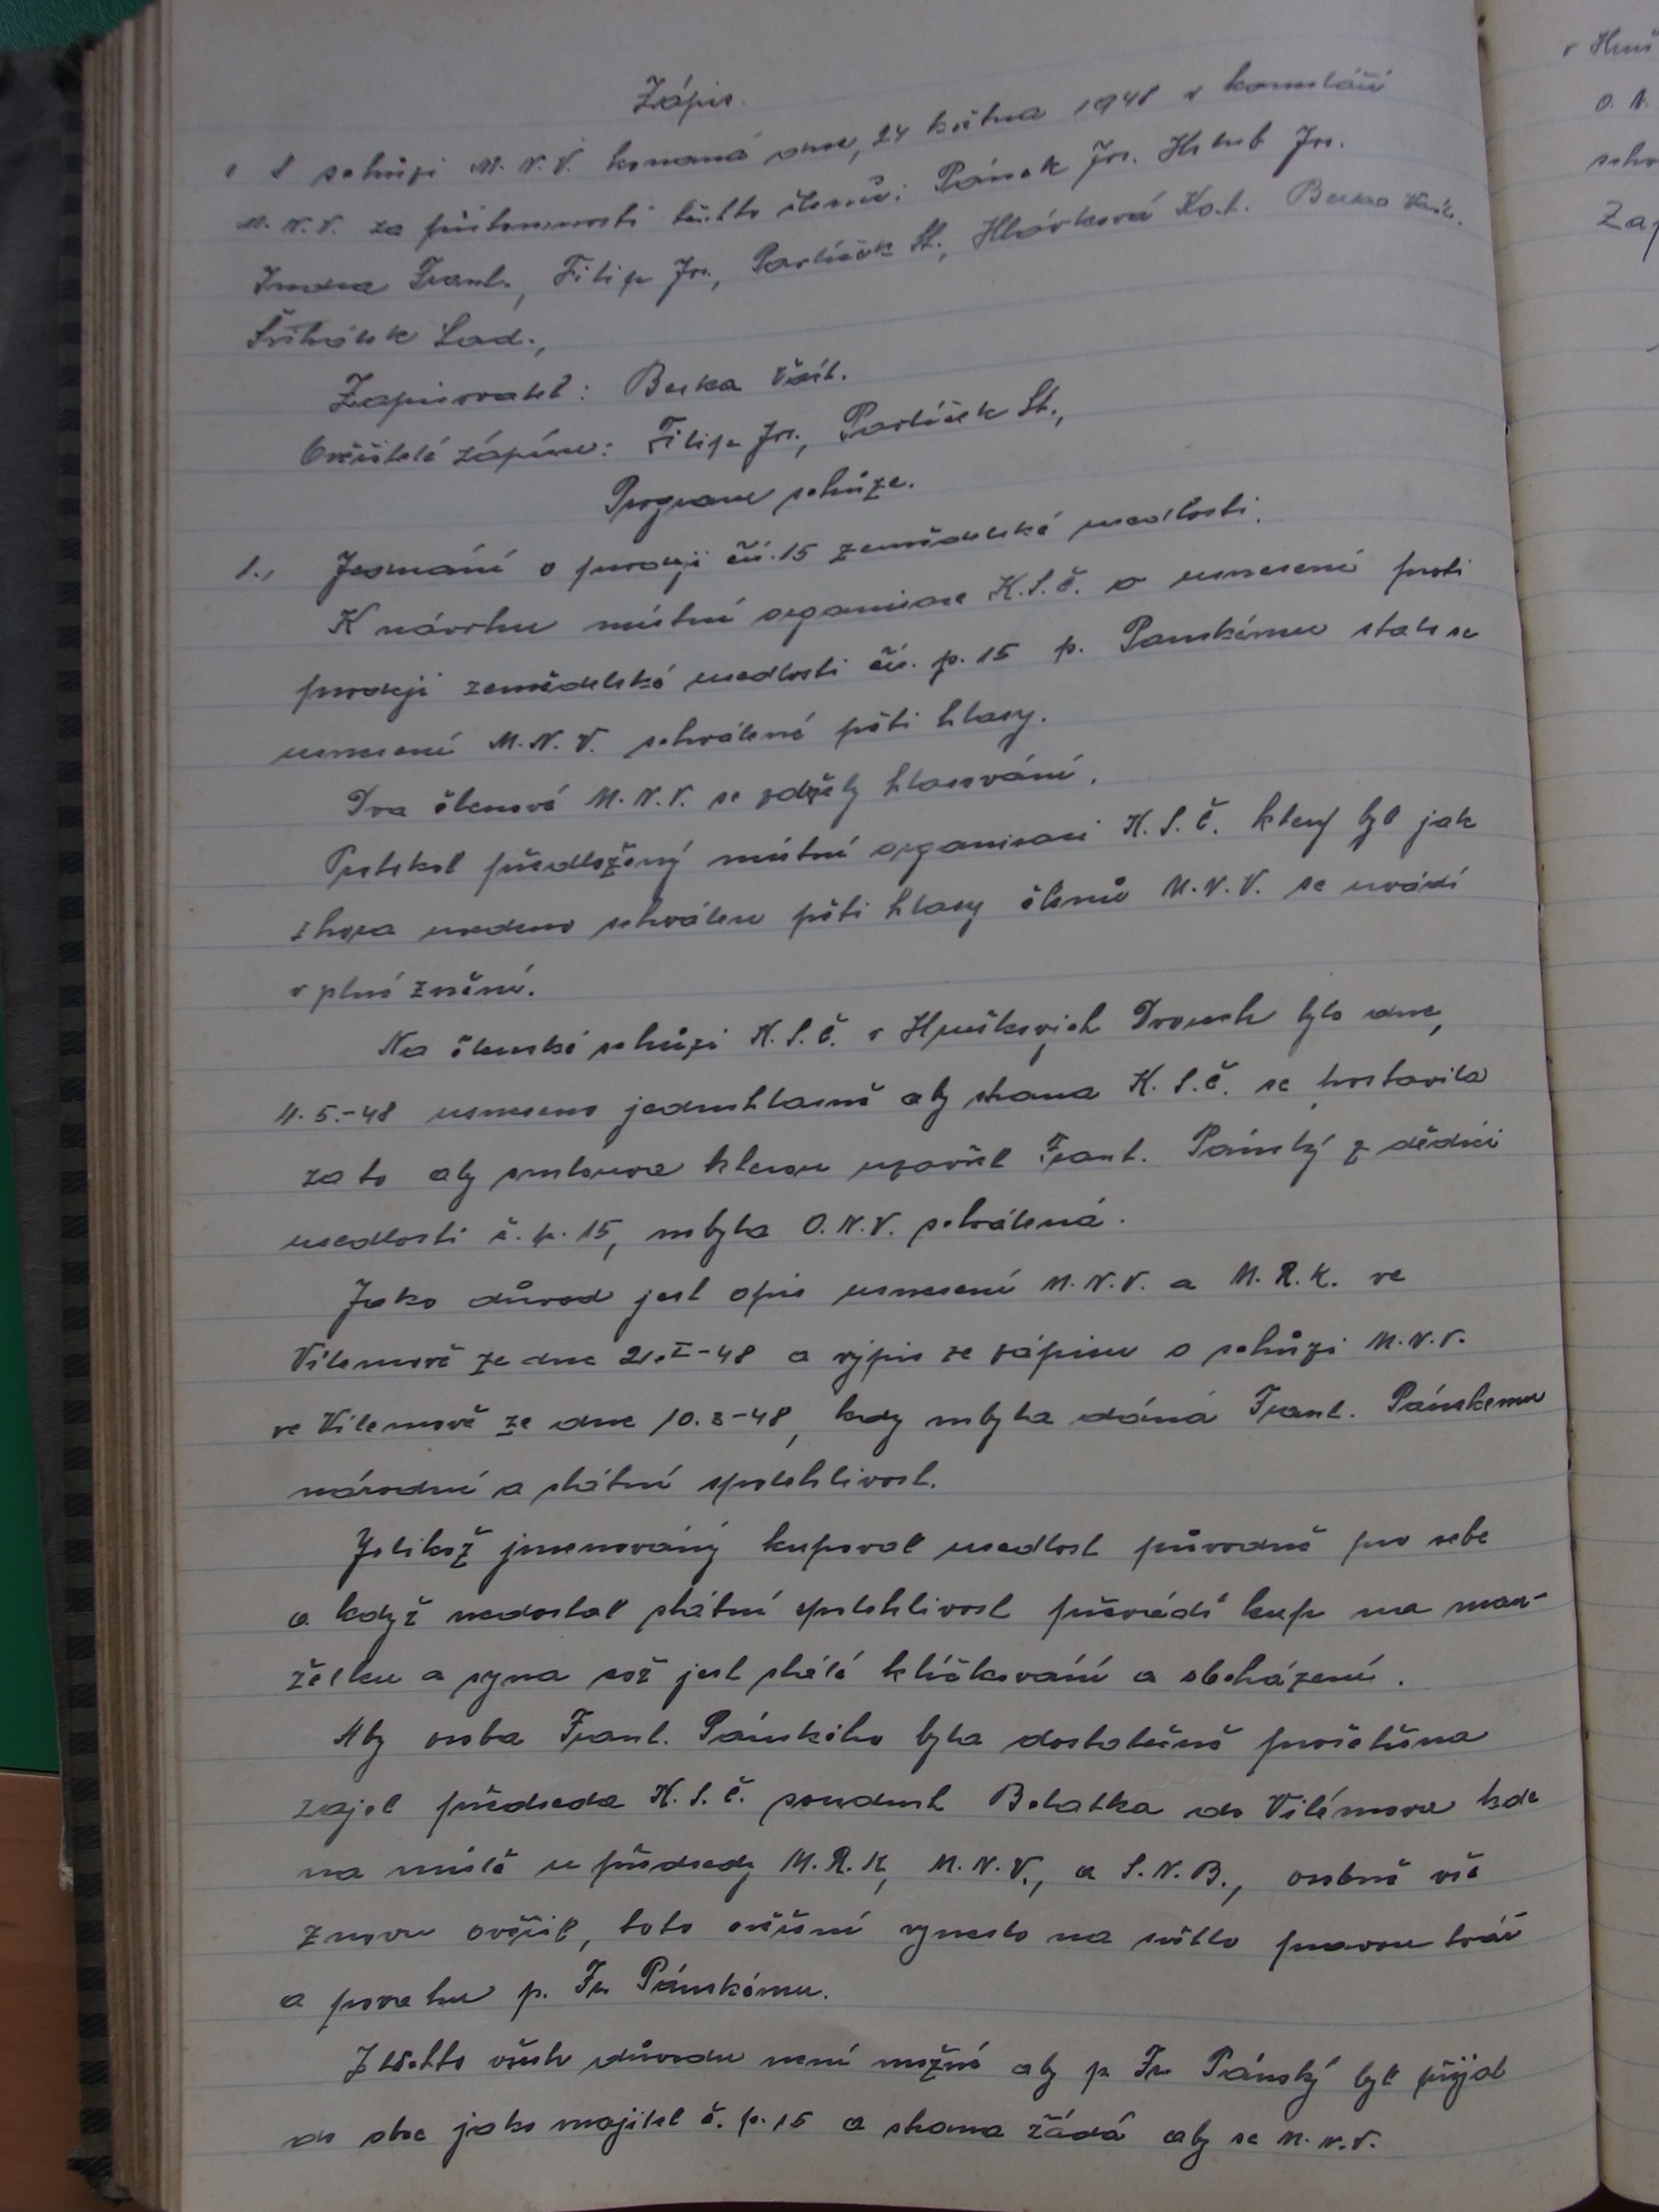 Zápis.
o schůzi M.N.V. konaná dne, 24 května 1948 v kanceláři
M.N.V. za přítomnosti těchto členů: Pánek Jos. Jos.
Frant., Filip Jos., Pavlíček St., Hlávková Kat. Berka Vác.
Lad.,
Zapisovatel: Berka Václ.
Ověřitelé zápisu: Filip Jos., Pavlíček St.,
Program schůze.
1., Jednání o prodeji čís. 15 zemědelské usedlosti.
K návrhu místní organisace K.S.Č. o usnesení proti
prodeji zemědelské usedlosti čís. p. 15 p. Panskému stalo se
usnesení M.N.V. schválené pěti hlasy.
Dva členové M.N.V. se zdržely hlasování.
Protokol předložený místní organisací K.S.Č. který byl jak
shora uvedeno schválen pěti hlasy členů M.N.V. se uvádí
v plné znění.
Na členské schůzi K.S.Č. v Dvorech bylo dne,
4.5.-48 usneseno jednohlasně aby strana K.S.Č. se postavila
za to aby smlouva kterou uzavřel Frant. Pánský z dědici
usedlosti č. p. 15, nebyla O.N.V. schválená.
Jako důvod jest opis usnesení M.N.V. a M.R.K. ve
Vilemově ze dne a výpis ze zápisu o schůzi M.N.V.
ve Vilemově ze dne 10.3-48, kdy nebyla dána Frant. Pánskemu
národní a státní spolehlivost.
Jelikož jmenováný kupoval usedlost původně pro sebe
a když nedostal státní spolehlivost převádí kup na man-
želku a syna což jest stálé kličkování a obcházení.
Aby osoba Frant. Pánského byla dostatečně prošetřena
zajel předseda K.S.Č. soudruh do Vilémova kde
na místě u předsedy M.R.K, M.N.V., a S.N.B., osobně vše
znovu ověřil, toto ověření vyneslo na světlo pravou tvář
a povahu p. Fr. Pánskému.
Z těchto všech důvodu není možné aby p. Fr. Pánský byl přijat
do obce jako majitel č. p. 15 a strana žádá aby se M.N.V.